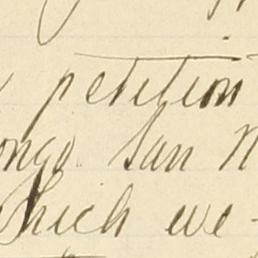 petition
ongo San N
which we